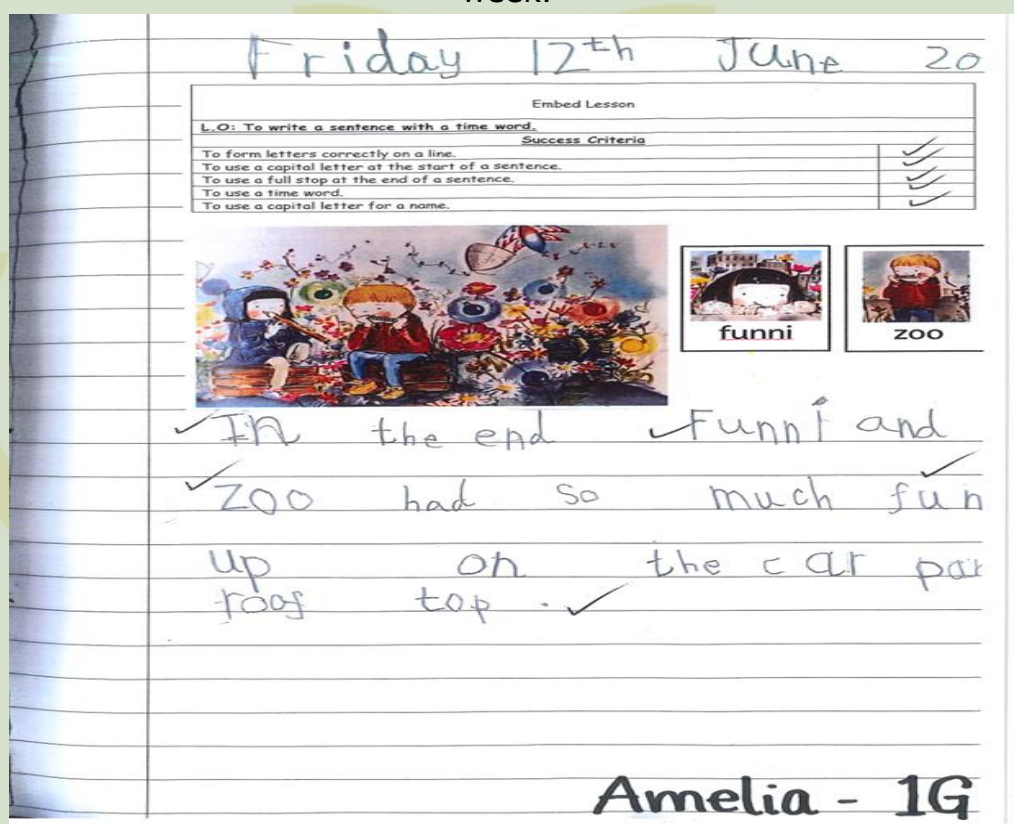 Friday 12th June 20
Embed Lesson
L.O: To write a sentence with a time word.
Success Criteria
To form letters correctly on a line.
To use a capital letter at the start of a sentence.
To use a full stop at the end of a sentence.
To use a time word.
To use a capital letter for a name.
funni
zoo
In the end Funni and
Zoo had so much fun
up on the car par
roof top .
Amelia - 1G